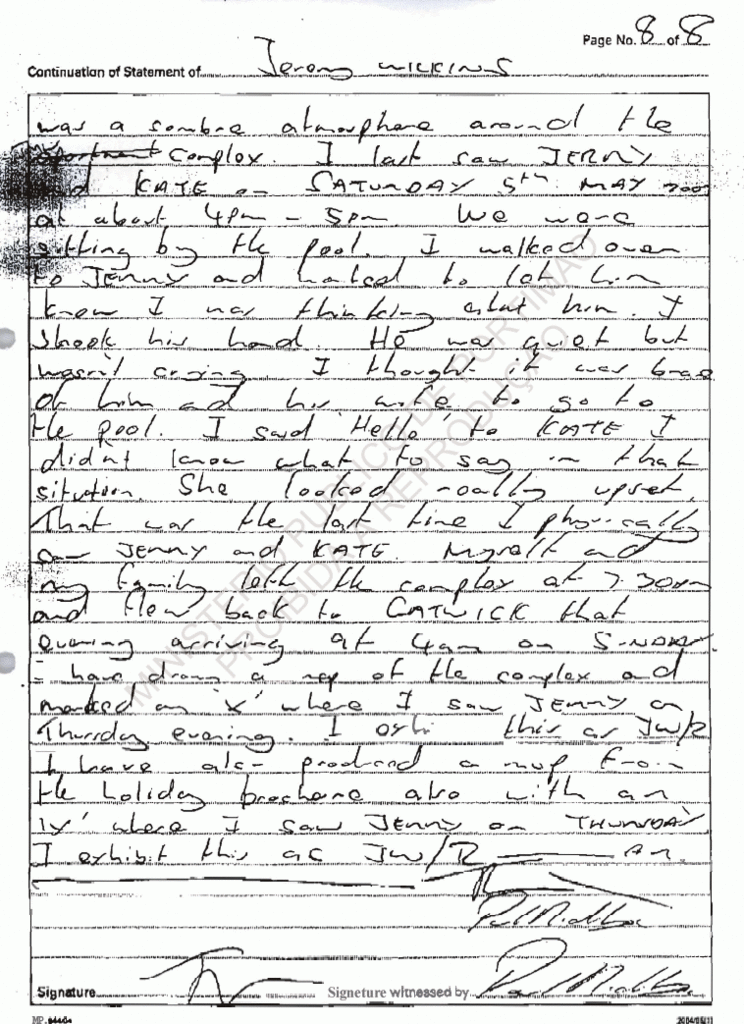 Page No. 8 of 8
Continuation of Statement of Jeremy WILKINS
was a sombre atmosphere around the
apartment complex. I last saw JERRY
and KATE on SATURDAY 5th MAY 2007
at about 4pm - 5pm. We were
sitting by the pool. I walked over
to JERRY and wanted to let him
know I was thinking about him. I
shook his hand. He was quiet but
wasn't crying. I thought it was brave
of him and his wife to go to
the pool. I said 'Hello' to KATE I
didn't know what to say in that
situation. She looked really upset.
That was the last time I physically
saw JERRY and KATE. Myself and
my family left the complex at 7.30pm
and flew back to GATWICK that
evening arriving at 4am on SUNDAY
I have drawn a map of the complex and
marked an 'X' where I saw JERRY on
Thursday evening. I this as JW/R
I have also produced a map from
the holiday brochure also with an
'X' where I saw JERRY on THURSDAY
I exhibit this as JW/R
MINISTÉRIO PÚBLICO DE PORTIMÃO
PROIBIDA A REPRODUÇÃO
Signature Signature witnessed by